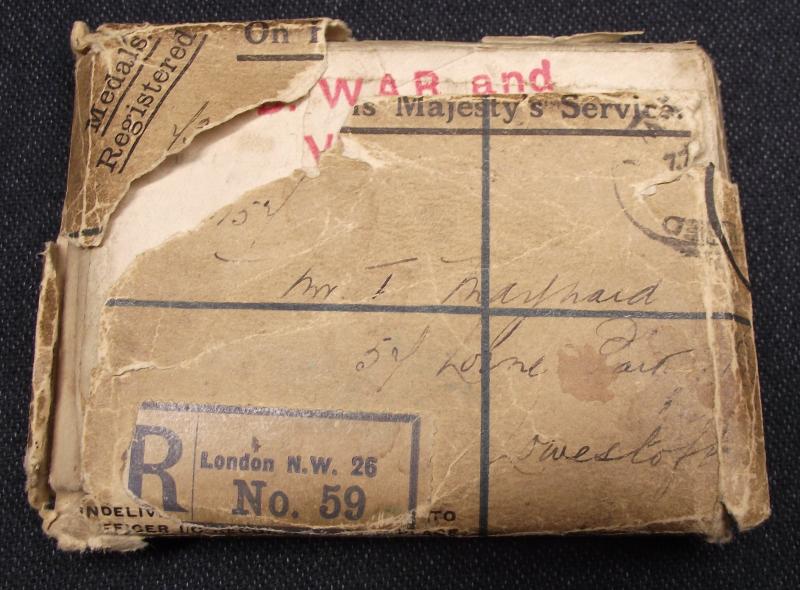 Medals
Registered
On
WAR and
V
is Majesty's Service.
152
Mr T Maynard
52 Lorne Park
Lowestoft
R
London N.W. 26
No. 59
NDELIV
TO